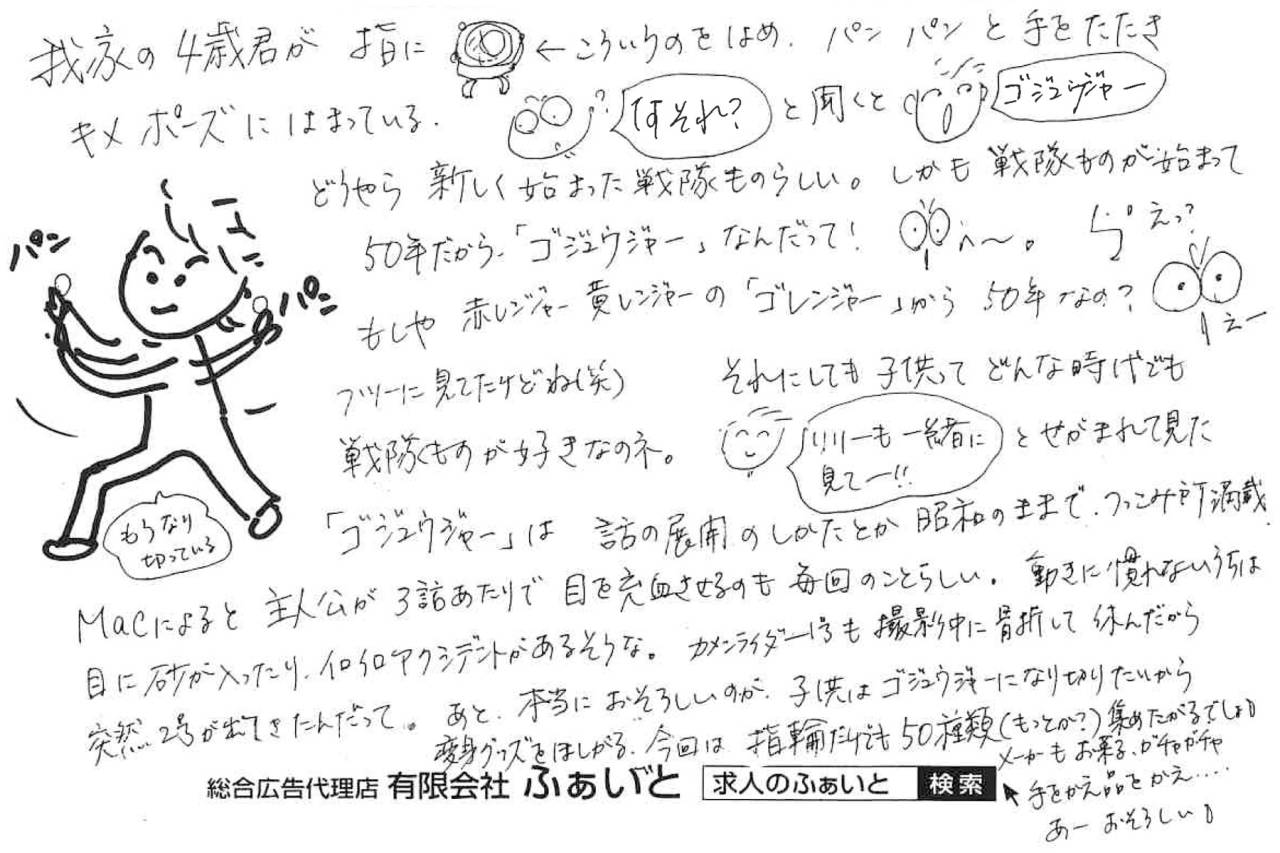 我家の4歳君が 指に ←こういうのをはめ、パン パン と 手をたたき
キメ ポーズにはまっている. なすそれ? と聞くと ゴジュウジャー
どうやら 新しく始まった戦隊ものらしい。しかも 戦隊ものが始まって
50年だから、「ゴジュウジャー」なんだって! へ〜。 えっ?
パン
パン
もしや 赤レンジャー 黄レンジャーの「ゴレンジャー」から 50年なの? えー
フツーに見てたけどね(笑) それにしても 子供って どんな時代でも
戦隊ものが好きなのネ。 リリーも一緒に
見てー!! とせがまれて見た
もうなり
切っている
「ゴジュウジャー」は 話の展開のしかたとか 昭和のままで、つっこみ所満載
Macによると 主人公が 3話あたりで 目を充血させるのも 毎回のことらしい。動きに慣れないうちは
目に砂が入ったり、イロイロアクシデントがあるそうな。カメンライダー1号も 撮影中に骨折して 休んだから
突然 2号が出てきたんだって。あと、本当に おそろしいのが、子供は ゴジュウジャーになり切りたいから
変身グッズをほしがる、今回は 指輪だけでも 50種類(もっとか?)集めたがるでしょ
メーカもお菓子、ガチャガチャ
手をかえ品をかえ.....
あー おそろしい
総合広告代理店 有限会社 ふぁいと 求人のふぁいと 検索